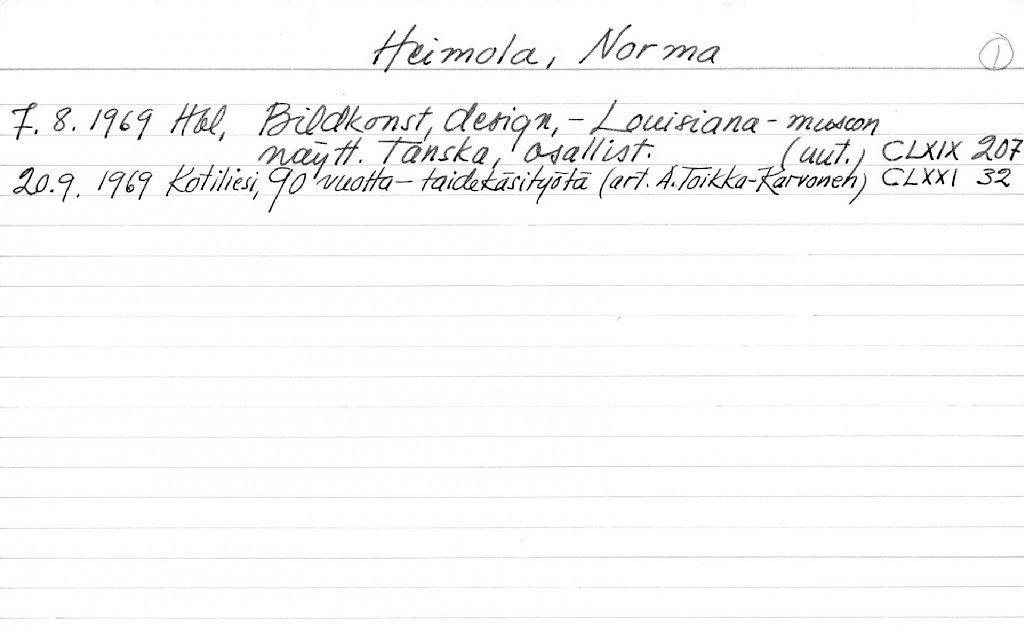 Heimola, Norma 1
7. 8. 1969 Hbl, Bildkonst, design, - Louisiana - museon
näytt. Tanska, osallist. (uut.) CLXIX 207
20.9. 1969 Kotiliesi, 90 vuotta - taidekäsityötä (art. A.Toikka-Karvonen) CLXXI 32